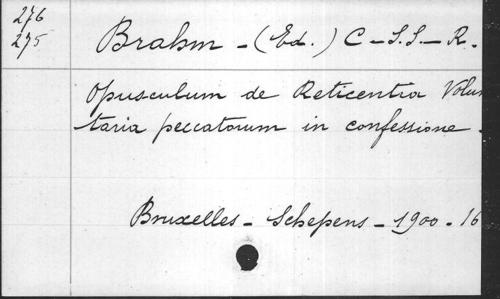 276
275
Brahm - (Ed.) C - S.S. - R.
Opusculum de Reticentia Volun
taria peccatorum in confessione.
Bruxelles - Schepens - 1900 - 16